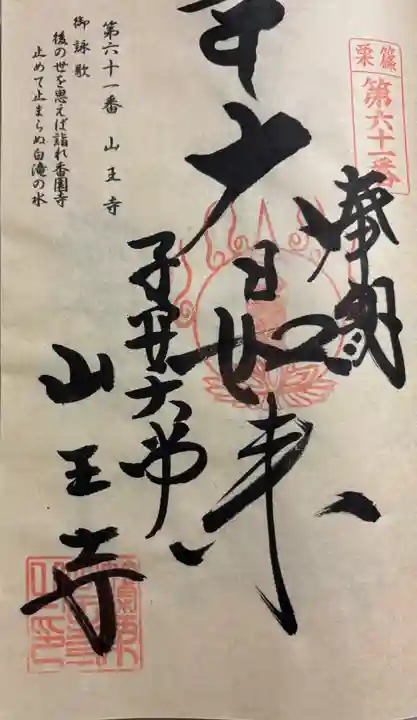 篠栗
第六十一番
奉納
大日如来
子安大师
山王寺
第六十一番 山王寺
御詠歌
後の世を思えば詣れ香園寺
止めて止まらぬ白滝の水